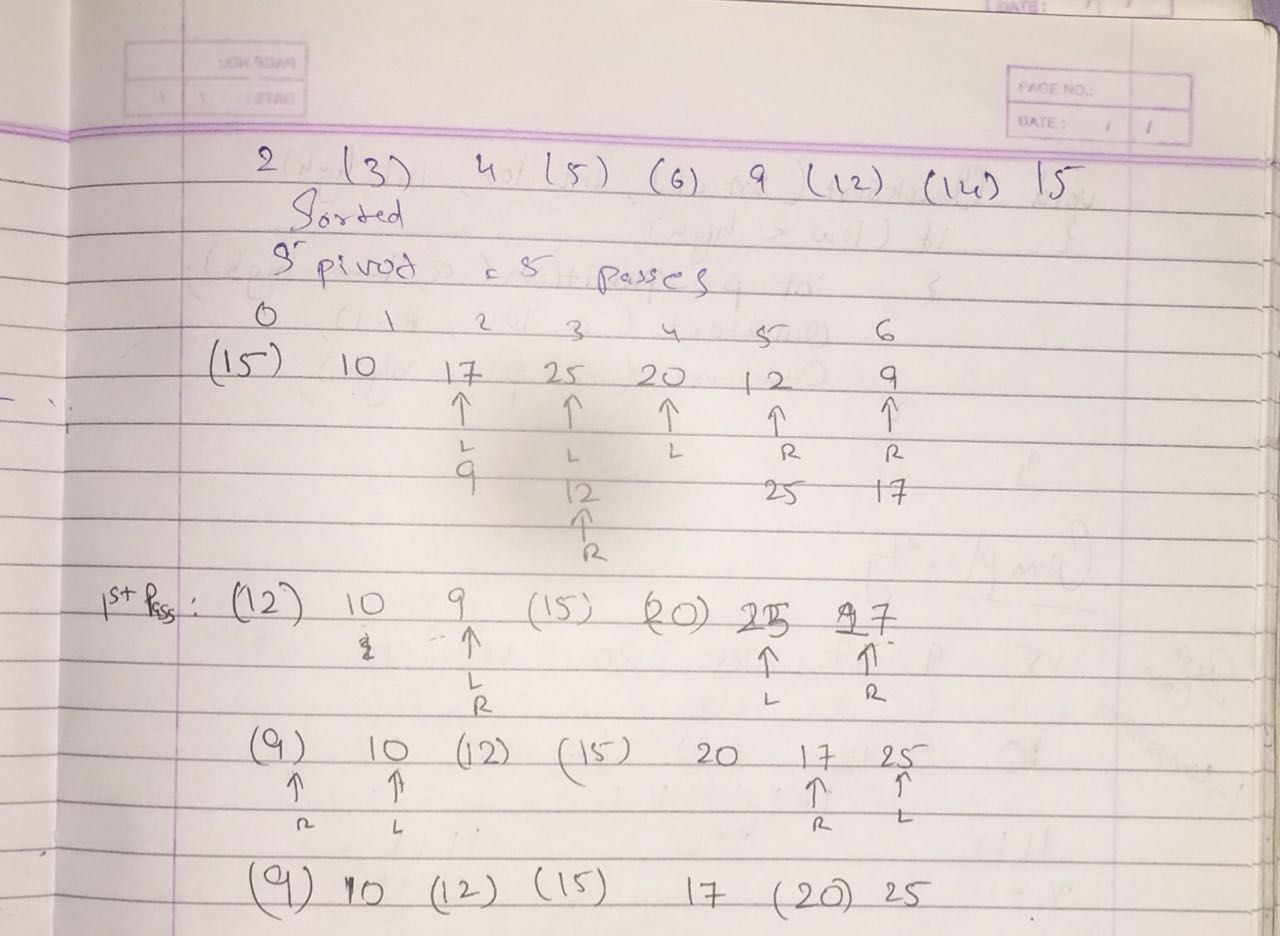 PAGE NO.:
DATE: / /
2 (3) 4 (5) (6) 9 (12) (14) 15
Sorted
5 pivot = 5 passes
0 1 2 3 4 5 6
(15) 10 17 25 20 12 9
↑ ↑ ↑ ↑ ↑
L L L R R
9 12 25 17
↑
R
1st Pass: (12) 10 9 (15) (20) 25 17
↑ ↑ ↑
L L R
R
(9) 10 (12) (15) 20 17 25
↑ ↑ ↑ ↑
R L R L
(9) 10 (12) (15) 17 (20) 25